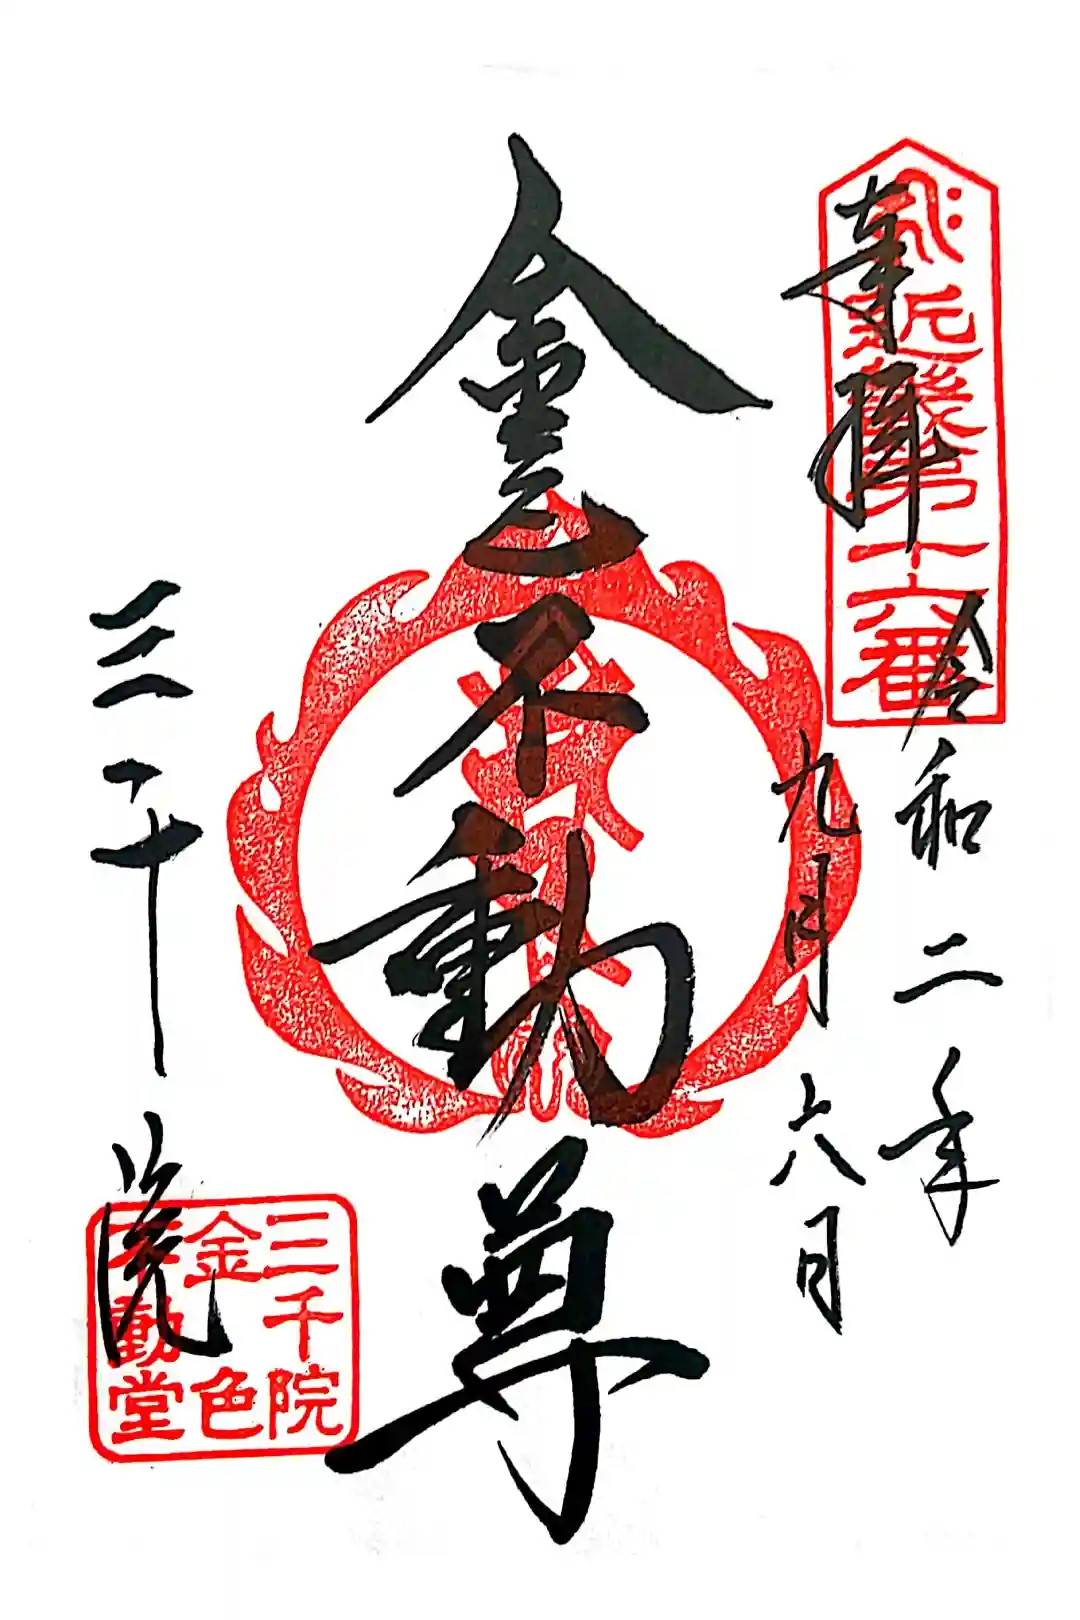 奉拝
近畿第十六番
令和二年
九月六日
金色不動尊
三千院
三千院
金色
不動堂